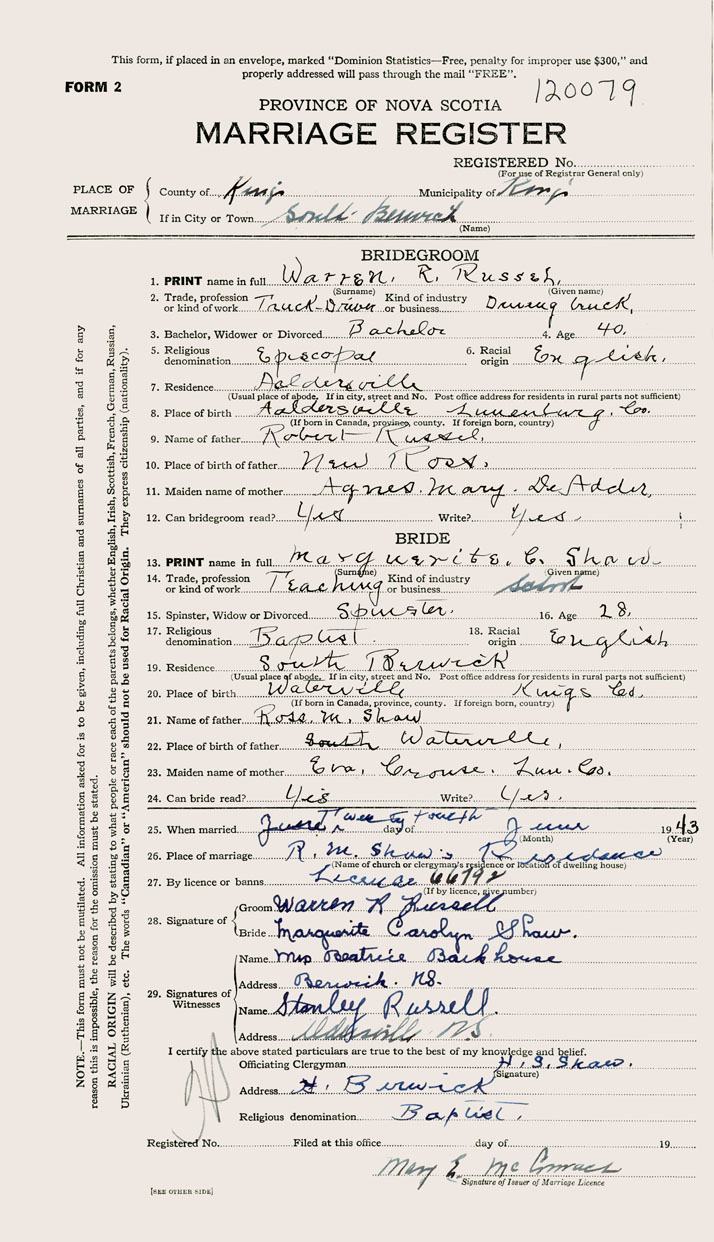 This form, if placed in an envelope, marked "Dominion Statistics—Free, penalty for improper use $300," and
properly addressed will pass through the mail "FREE".
FORM 2
120079
PROVINCE OF NOVA SCOTIA
MARRIAGE REGISTER
REGISTERED No.
(For use of Registrar General only)
PLACE OF MARRIAGE
County of Kings Municipality of Kings
If in City or Town South Berwick
(Name)
BRIDEGROOM
1. PRINT name in full Warren. R. Russel,
(Surname) (Given name)
2. Trade, profession or kind of work Truck-Driver Kind of industry or business Driving truck,
3. Bachelor, Widower or Divorced Bachelor 4. Age 40.
5. Religious denomination Episcopal 6. Racial origin English.
7. Residence Aaldersville
(Usual place of abode. If in city, street and No. Post office address for residents in rural parts not sufficient)
8. Place of birth Aaldersville Lunenburg. Co.
(If born in Canada, province, county. If foreign born, country)
9. Name of father Robert Russel.
10. Place of birth of father New Ross.
11. Maiden name of mother Agnes. Mary. DeAdder,
12. Can bridegroom read? Yes Write? Yes.
BRIDE
13. PRINT name in full Marguerite. C. Shaw
(Surname) (Given name)
14. Trade, profession or kind of work Teaching Kind of industry or business School
15. Spinster, Widow or Divorced Spinster. 16. Age 28.
17. Religious denomination Baptist. 18. Racial origin English
19. Residence South Berwick
(Usual place of abode. If in city, street and No. Post office address for residents in rural parts not sufficient)
20. Place of birth Waterville Kings Co.
(If born in Canada, province, county. If foreign born, country)
21. Name of father Ross. M. Shaw
22. Place of birth of father South Waterville,
23. Maiden name of mother Eva. Crouse. Lun. Co.
24. Can bride read? Yes Write? Yes.
25. When married Twenty fourth day of June 1943
(Month) (Year)
26. Place of marriage R. M. Shaw's Residence
(Name of church or clergyman's residence or location of dwelling house)
27. By licence or banns License 66792
(If by licence, give number)
28. Signature of
Groom Warren R Russell
Bride Marguerite Carolyn Shaw.
29. Signatures of Witnesses
Name Mrs Beatrice Backhouse
Address Berwick. NS.
Name Stanley Russell.
Address Aldersville N.S.
I certify the above stated particulars are true to the best of my knowledge and belief.
Officiating Clergyman H. S. Shaw.
(Signature)
Address Berwick
Religious denomination Baptist.
Registered No. Filed at this office day of 19
Mary E.
Signature of Issuer of Marriage Licence
[SEE OTHER SIDE]
NOTE.—This form must not be mutilated. All information asked for is to be given, including full Christian and surnames of all parties, and if for any
reason this is impossible, the reason for the omission must be stated.
RACIAL ORIGIN will be described by stating to what people or race each of the parents belongs, whether English, Irish, Scottish, French, German, Russian,
Ukrainian (Ruthenian), etc. The words "Canadian" or "American" should not be used for Racial Origin. They express citizenship (nationality).